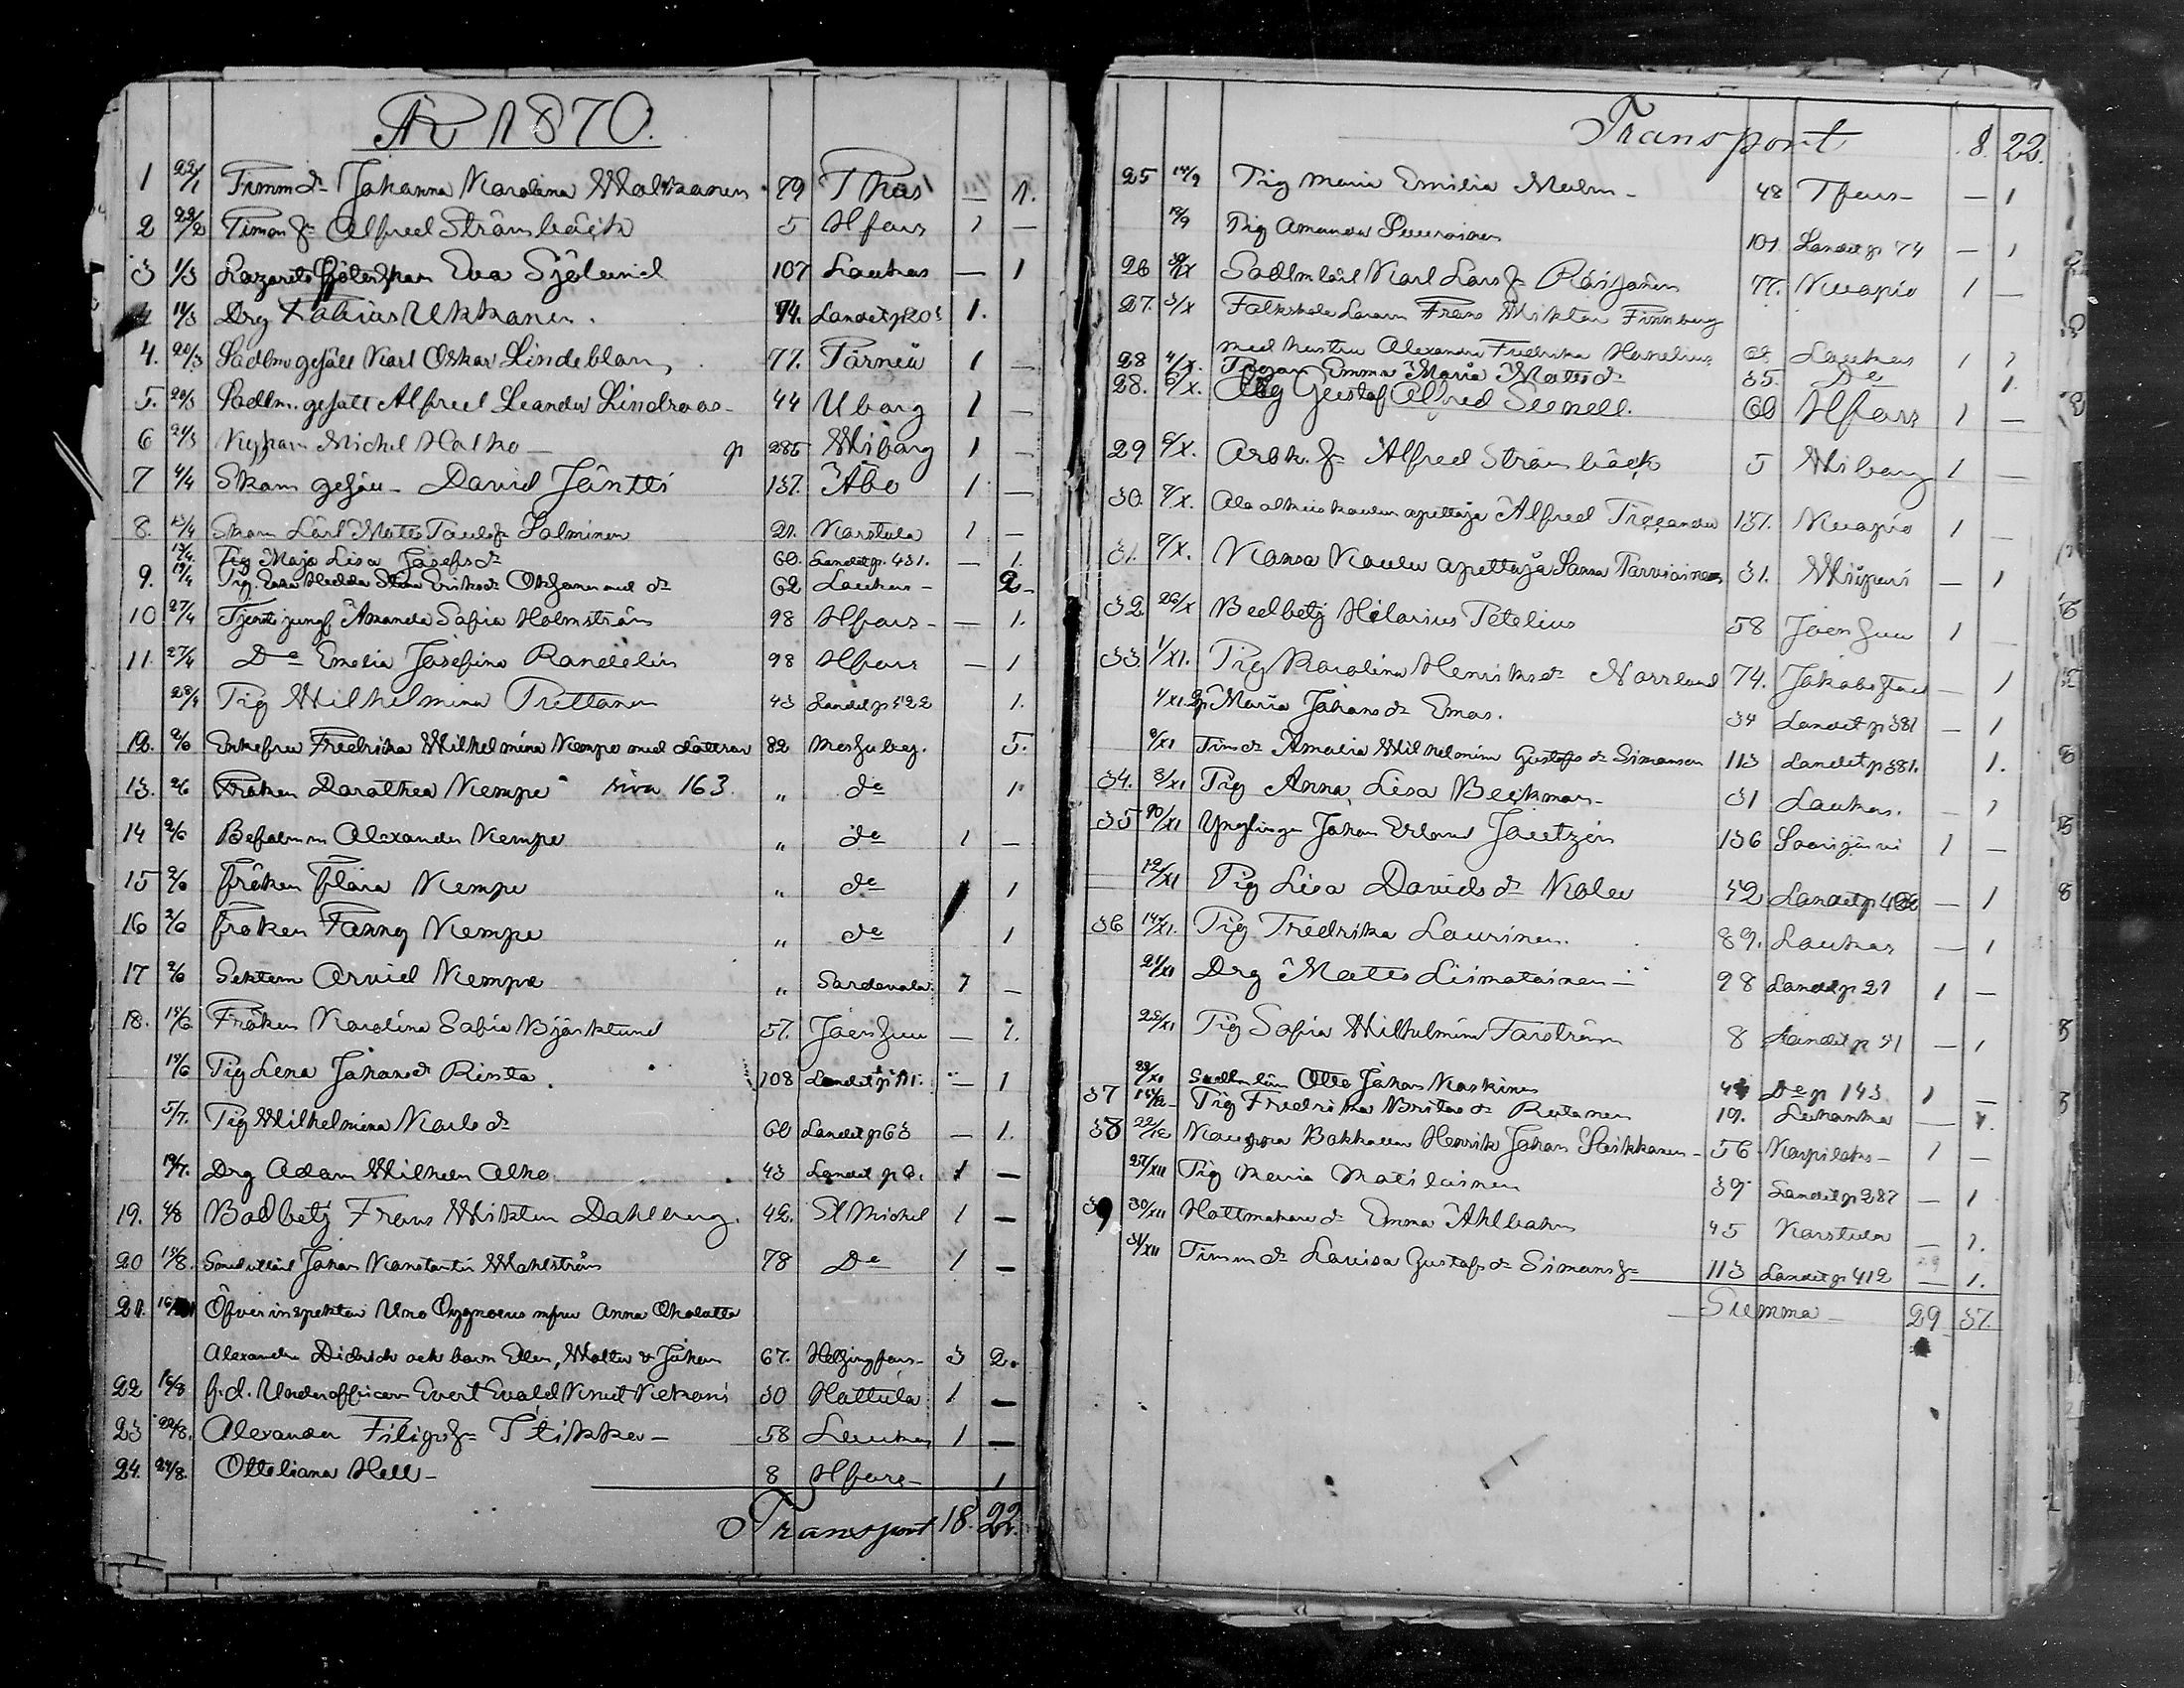 ÅR 1870.
1 22/1 Timm dr Johanna Karolina Malkanen 89 T hus — 1.
2 22/2 Timm Sn Alfred Strömbäck 5 Hfors 1 —
3 1/3 Lazarets Sköterskan Eva Sjölund 107 Laukas — 1
11/3 Drg Ukkanen. 74. Landet p 203 1.
4. 20/3 Sadlm gesäll Karl Oskar Lindeblom 77. Pärneå 1 —
5. 20/3 Sadlm. gesäll Alfred Leander Lindroos 44 Uborg 1 —
6 21/3 Kypparn Michel Halko — p 285 Wiborg 1 —
7 4/4 Skom gesäll David Jäntti 137. Åbo 1 —
8. 13/4 Skom Lärl Matts Paulss Salminen 21. Karstula 1 —
Pig Maja Lisa Josefs dr 60. Landet p. 431. — 1.
9. 19/4 Pig. Hedda Eriks dr med dr 62 Laukas — 2
10 27/4 jungf Amanda Sofia Holmström 98 Hfors — 1.
11. 27/4 Do Emelia Josefina Randelin 98 Hfors — 1
28/4 Pig Wilhelmina Prittanen 43 Landet p 522 1.
12. 2/6 Enkefru Fredrika Wilhelmina Kempe med döttrar 82 5.
13. 2/6 Fröken Dorothea Kempe 163. „ do 1
14 2/6 Alexander Kempe „ do 1 —
15 2/6 fröken Flora Kempe „ do 1
16 2/6 fröken Fanny Kempe „ do 1
17 2/6 Arvid Kempe „ Sordavala 1 —
18. 15/6 Fröken Karolina Sofia Björklund 57. Joensuu — 1.
15/6 Pig Lena Johans dr Rinta. 108 Landet p 111. — 1
5/7. Pig Wilhelmina Karls dr 60 Landet p 63 — 1.
19/7. Drg Adam Wilhelm Alho 43 Landet p 6. 1 —
19. 4/8 Bodbetj Frans Wiktor Dahlberg. 42. St Michel 1 —
20 15/8. Johan Konstantin Wahlström 78 Do 1 —
21. Öfverinspektor Uno Cygnaeus mfru Anna Charlotta
Alexandra Didrich och barn Elen, Walter & Johan 67. Helsingfors 3 2.
22 16/8 f. d. Underofficern Evert Evald Knut Nekoni 30 Hattula 1 —
23 22/8. Alexander Filips Sn Tikka — 58 Laukas 1 —
24. 24/8. Otteliana Hell — 8 Hfors — 1
Transport 18. 22.
Transport 8. 22.
25 14/9 Pig Maria Emilia Malm — 48 Tfors — 1
19/9 Pig Amanda Puuroinen 101 Landet p 74 — 1
26 Sadlm lärl Karl Lars Sn Räisänen 77. Kuopio 1 —
27. 3/X Folkskole Läraren Frans Wiktor Finnberg
med hustru Alexandra Fredrika Hanelius 68 Laukas 1 1
28 4/X. Emma Maria Matts dr 35. Do 1.
28. 5/X. Gustaf Alfred Senell. 60 Hfors 1 —
29 6/X. Arbk. Sn Alfred Strömbäck 5 Wiborg 1 —
30. 7/X. Ala alkeis koulun opettaja Alfred 137. Kuopio 1 —
31. 7/X. Kansa Koulun opettaja Sanna Parviainen 31. Wiipuri — 1
32 26/X Bedbetj Hilarius Petelius 58 Joensuu 1 —
33 1/XI. Pig Karolina Henriks dr Norrlund 74. Jakobstad — 1
1/XI. Maria Johans dr Emas. 34 Landet p 381 — 1
Timm dr Amalia Wilhelmina Gustafs dr Simonsson 113 Landet p 381. 1.
34. 8/XI Pig Anna Lisa Beckman — 31 Laukas. — 1
35 10/XI Ynglingen Johan Erland Jäntzén 136 Saarijärvi 1 —
12/XI Pig Lisa Davids dr Kolu 52 Landet p — 1
36 14/XI. Pig Fredrika Laurinen. 89. Laukas — 1
21/XI Drg Matts Liimatainen — 98 Landet p 21 1 —
28/XI Pig Sofia Wilhelmina Forström 8 Landet p 51 — 1
28/XI Sadlm lärl Otto Johan Koskinen Do p 143 1 —
37 Pig Fredrika Britas dr Rutanen 19. Leuhanka — 1.
38 22/12 Nauppa Bokhållaren Henrik Johan Saikkanen — 56 Karpilaks 1 —
27/XII Pig Maria Matilainen 39 Landet p 287 — 1
39 30/XII Hattmakare dr Emma Ahlholm 45 Karstula — 1.
31/XII Timm dr Lovisa Gustafs dr Simons Sn 113 Landet p 412 — 1.
Summa 29 37.